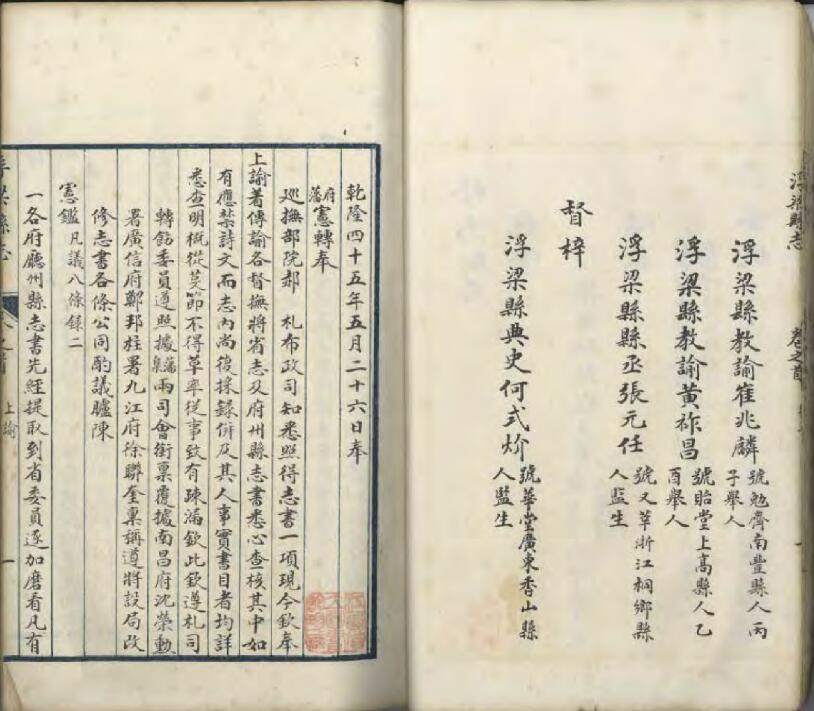 浮梁縣志
卷之首
浮梁縣教諭崔兆麟號勉齋南豐縣人丙子舉人
浮梁縣教諭黃祚昌號貽堂上高縣人乙酉舉人
浮梁縣縣丞張元任號又莘浙江桐鄉縣人監生
督梓
浮梁縣典史何式炌號華堂廣東香山縣人監生
乾隆四十五年五月二十六日奉
藩府憲轉奉
巡撫部院郝 札布政司知悉照得志書一項現今欽奉
上諭著傳諭各督撫將省志及府州縣志書悉心查核其中如
有應禁詩文而志內尚復採錄併及其人事實書目者均詳
悉查明概從芟節不得草率從事致有疎漏欽此欽遵札司
轉飭委員遵照據藩臬兩司會銜稟覆據南昌府沈榮勳
署廣信府鄭邦柱署九江府徐聯奎稟稱遵將設局改
修志書各條公同酌議臚陳
憲鑑 凡議八條錄二
一各府廳州縣志書先經提取到省委員逐加磨看凡有
浮梁縣志
上諭
一